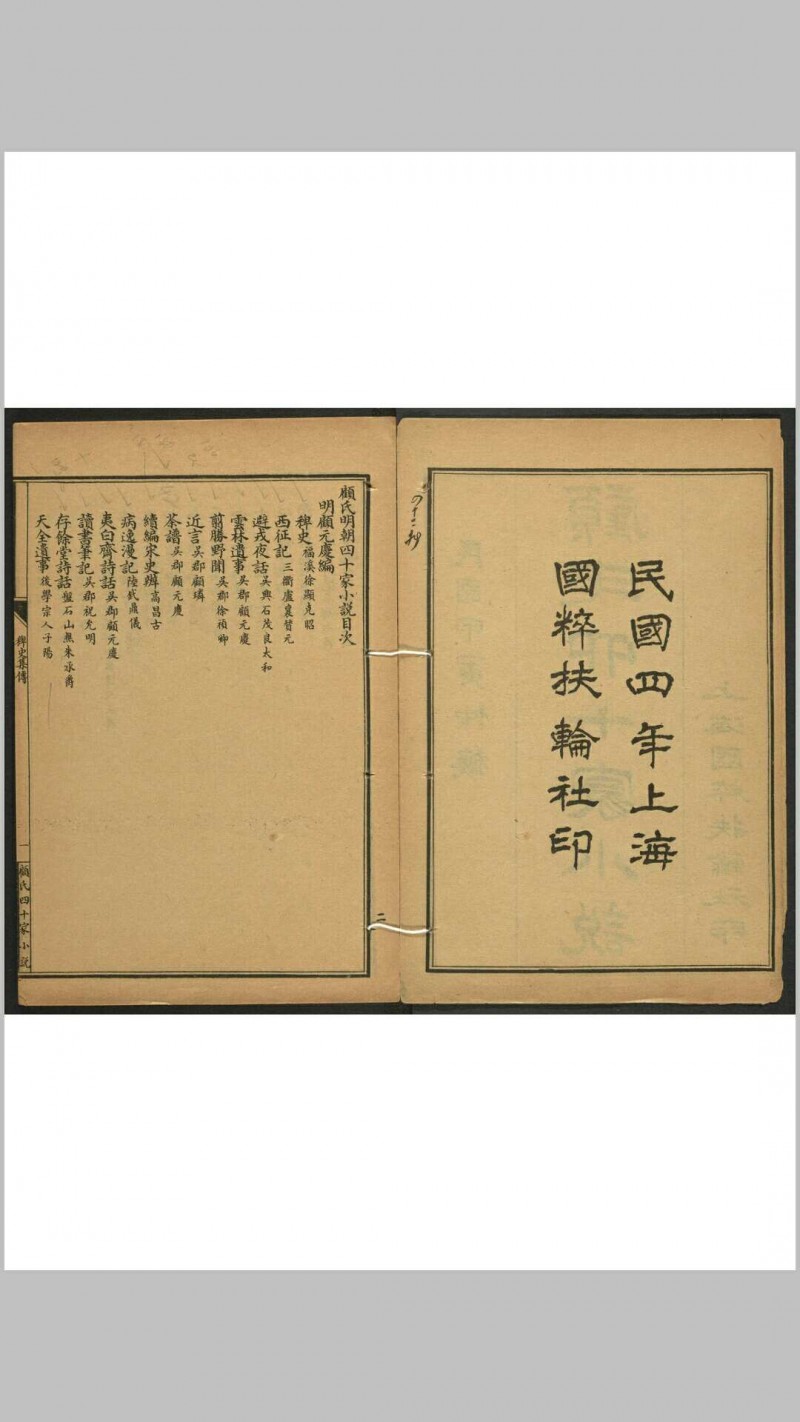 民國四年上海
國粹扶輪社印
二
顧氏明朝四十家小說目次
明顧元慶編
稗史 福溪徐顯克昭
西征記 三衢盧襄贊元
避戎夜話 吳興石茂良太和
雲林遺事 吳郡顧元慶
翦勝野聞 吳郡徐禎卿
近言 吳郡顧璘
茶譜 吳郡顧元慶
續編宋史辨 高昌古
病逸漫記 陸釴鼎儀
夷白齋詩話 吳郡顧元慶
讀書筆記 吳郡祝允明
存餘堂詩話 盤石山樵朱承爵
天全遺事 後學宗人子陽
稗史集傳
一
顧氏四十家小說